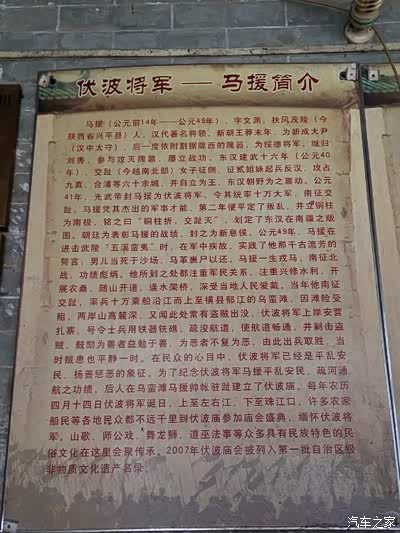 伏波将军 — 马援简介
马援（公元前14年——公元49年），字文渊，扶风茂陵（今
陕西省兴平县）人，汉代著名将领，新朝王莽末年，为新成大尹
（汉中太守）、后一度依附割据陇西的隗嚣，为绥德将军，继归
刘秀，参与攻灭隗嚣，屡立战功，东汉建武十六年（公元40
年），交趾（今越南北部）女子征侧、征贰姐妹起兵反汉，攻占
九真、合浦等六十余城，并自立为王，东汉朝野为之震动。公元
41年，光武帝封马援为伏波将军，令其统率十万大军，南征交
趾。马援凭其杰出的军事才能，第二年便平定了叛乱，并立铜柱
为南极，铭之曰“铜柱折，交趾灭”，划定了东汉在南疆之版
图。朝廷为表彰马援的战绩，封之为新息侯。公元49年，马援在
进击武陵“五溪蛮夷”时，在军中疾故，实践了他那千古流芳的
誓言：男儿当死于沙场，马革裹尸以还。马援一生戎马，南征北
战，功绩彪炳。他所到之处都注重军民关系，注重兴修水利，开
展农桑，随山开道，遂水架桥，深受当地人民爱戴，当年他南征
交趾，率兵十万乘船沿江而上至横县郁江的乌蛮滩，因滩险受
阻，两岸山高麓深，又闻此处常有盗贼出没，伏波将军上岸安营
扎寨，号令士兵用铁器铣礁，疏浚航道，使航道畅通，并剿击盗
贼，鼓励为善者益勉于善，为恶者不复为恶，由此出兵取胜，当
时贼患也平静一时。在民众的心目中，伏波将军已经是平乱安
民、扬善惩恶的象征。为了纪念伏波将军马援平乱安民、疏河通
航之功绩，后人在乌蛮滩马援帅帐驻跸建立了伏波庙。每年农历
四月十四日伏波将军诞日，上至左右江、下至珠江口，许多农家
船民等各地民众都不远千里到伏波庙参加庙会盛典，缅怀伏波将
军。山歌、师公戏、舞龙狮、道巫法事等众多具有民族特色的民
俗文化在这里会聚传承。2007年伏波庙会被列入第一批自治区级
非物质文化遗产名录。
汽车之家